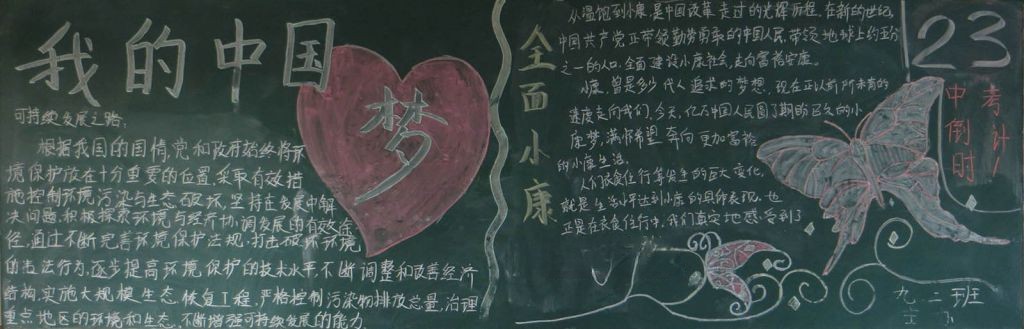 我的中国
梦
可持续发展之路:
根据我国的国情,党和政府始终将环
境保护放在十分重要的位置,采取有效措
施控制环境污染与生态破坏,坚持在发展中解
决问题,积极探索环境与经济协调发展的有效途
径,通过不断完善环境保护法规,打击破坏环境
的违法行为,逐步提高环境保护的技术水平,不断调整和改善经济
结构,实施大规模生态恢复工程,严格控制污染物排放总量,治理
重点地区的环境和生态,不断增强可持续发展的能力
全面小康
从温饱到小康是中国改革走过的光辉历程,在新的世纪,
中国共产党正带领勤劳勇敢的中国人民,带领地球上约五分
之一的人口,全面建设小康社会,走向富裕安康。
小康,曾是多少代人追求的梦想,现在正以前所未有的
速度走向我们,今天,亿万中国人民圆了期盼已久的小
康梦,满怀希望奔向更加富裕
的小康生活。
人们衣食住行等发生的巨大变化,
就是生活水平达到小康的具体表现,也
正是在衣食住行中,我们真实地感受到了
23
中考倒计时
九 二班